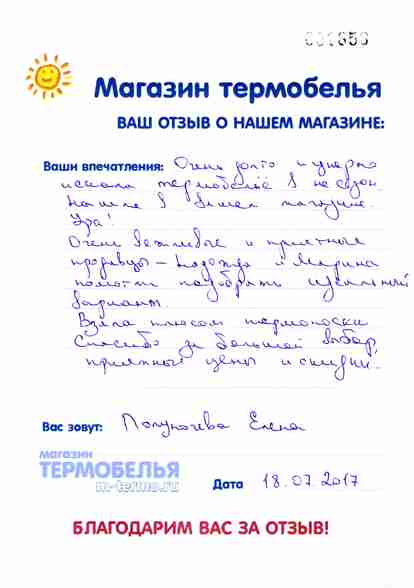 001656
Магазин термобелья
ВАШ ОТЗЫВ О НАШЕМ МАГАЗИНЕ:
Ваши впечатления: Очень долго и упорно
искала термобельё в не сезон.
Нашла в вашем магазине.
Ура!
Очень вежливые и приятные
продавцы – Надежда и Марина
помогли подобрать идеальный
варианты.
Взяла плюсом термоноски
Спасибо за большой выбор,
приятные цены и скидки.
Вас зовут: Елена
магазин
ТЕРМОБЕЛЬЯ
m-termo.ru
Дата 18.07.2017
БЛАГОДАРИМ ВАС ЗА ОТЗЫВ!